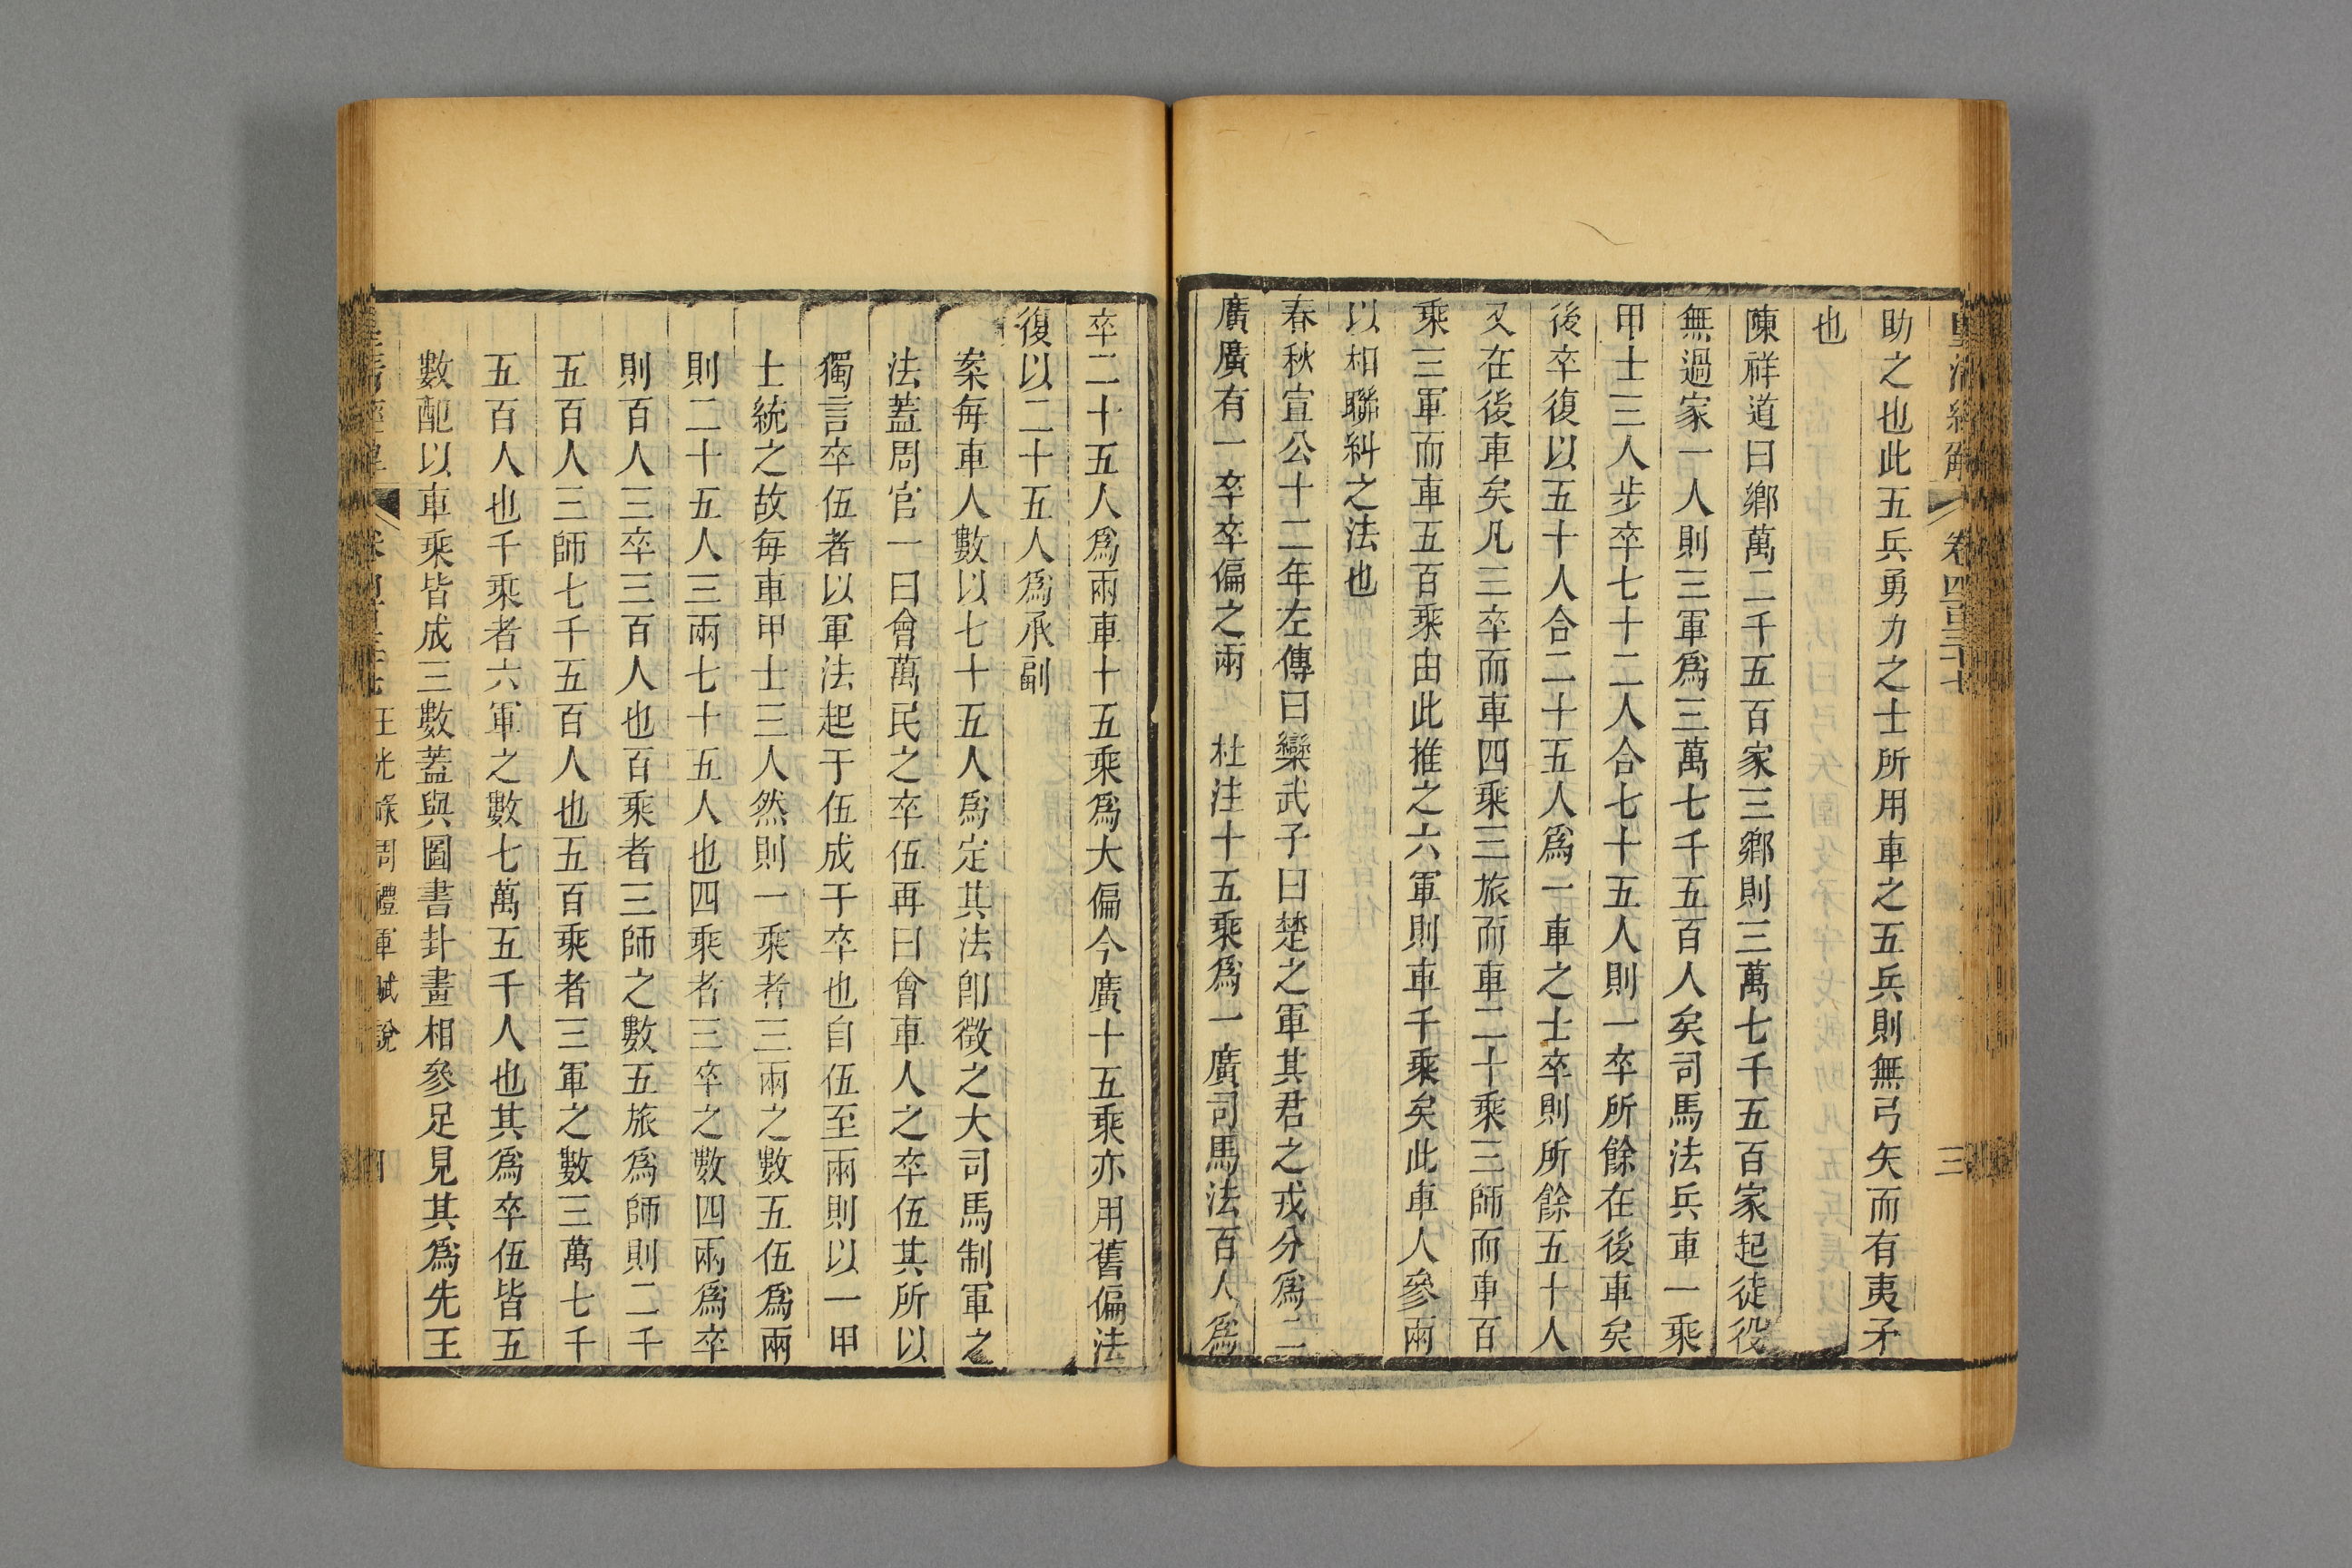 皇清經解 卷四百三十七 三
助之也此五兵勇力之士所用車之五兵則無弓矢而有夷矛
也
陳祥道曰鄉萬二千五百家三鄉則三萬七千五百家起徒役
無過家一人則三軍爲三萬七千五百人矣司馬法兵車一乘
甲士三人步卒七十二人合七十五人則一卒所餘在後車矣
後卒復以五十人合二十五人爲一車之士卒則所餘五十人
又在後車矣凡三卒而車四乘三旅而車二十乘三師而車百
乘三軍而車五百乘由此推之六軍則車千乘矣此車人參兩
以相聯糾之法也
春秋宣公十二年左傳曰欒武子曰楚之軍其君之戎分爲二
廣廣有一卒卒偏之兩 杜注十五乘爲一廣司馬法百人爲
卒二十五人爲兩車十五乘爲大偏今廣十五乘亦用舊偏法
復以二十五人爲承副
案每車人數以七十五人爲定其法卽徵之大司馬制軍之
法蓋周官一曰會萬民之卒伍再曰會車人之卒伍其所以
獨言卒伍者以軍法起于伍成于卒也自伍至兩則以一甲
士統之故每車甲士三人然則一乘者三兩之數五伍爲兩
則二十五人三兩七十五人也四乘者三卒之數四兩爲卒
則百人三卒三百人也百乘者三師之數五旅爲師則二千
五百人三師七千五百人也五百乘者三軍之數三萬七千
五百人也千乘者六軍之數七萬五千人也其爲卒伍皆五
數配以車乘皆成三數蓋與圖書卦畫相參足見其爲先王
皇清經解 卷四百三十七 王光祿周禮軍賦說 四